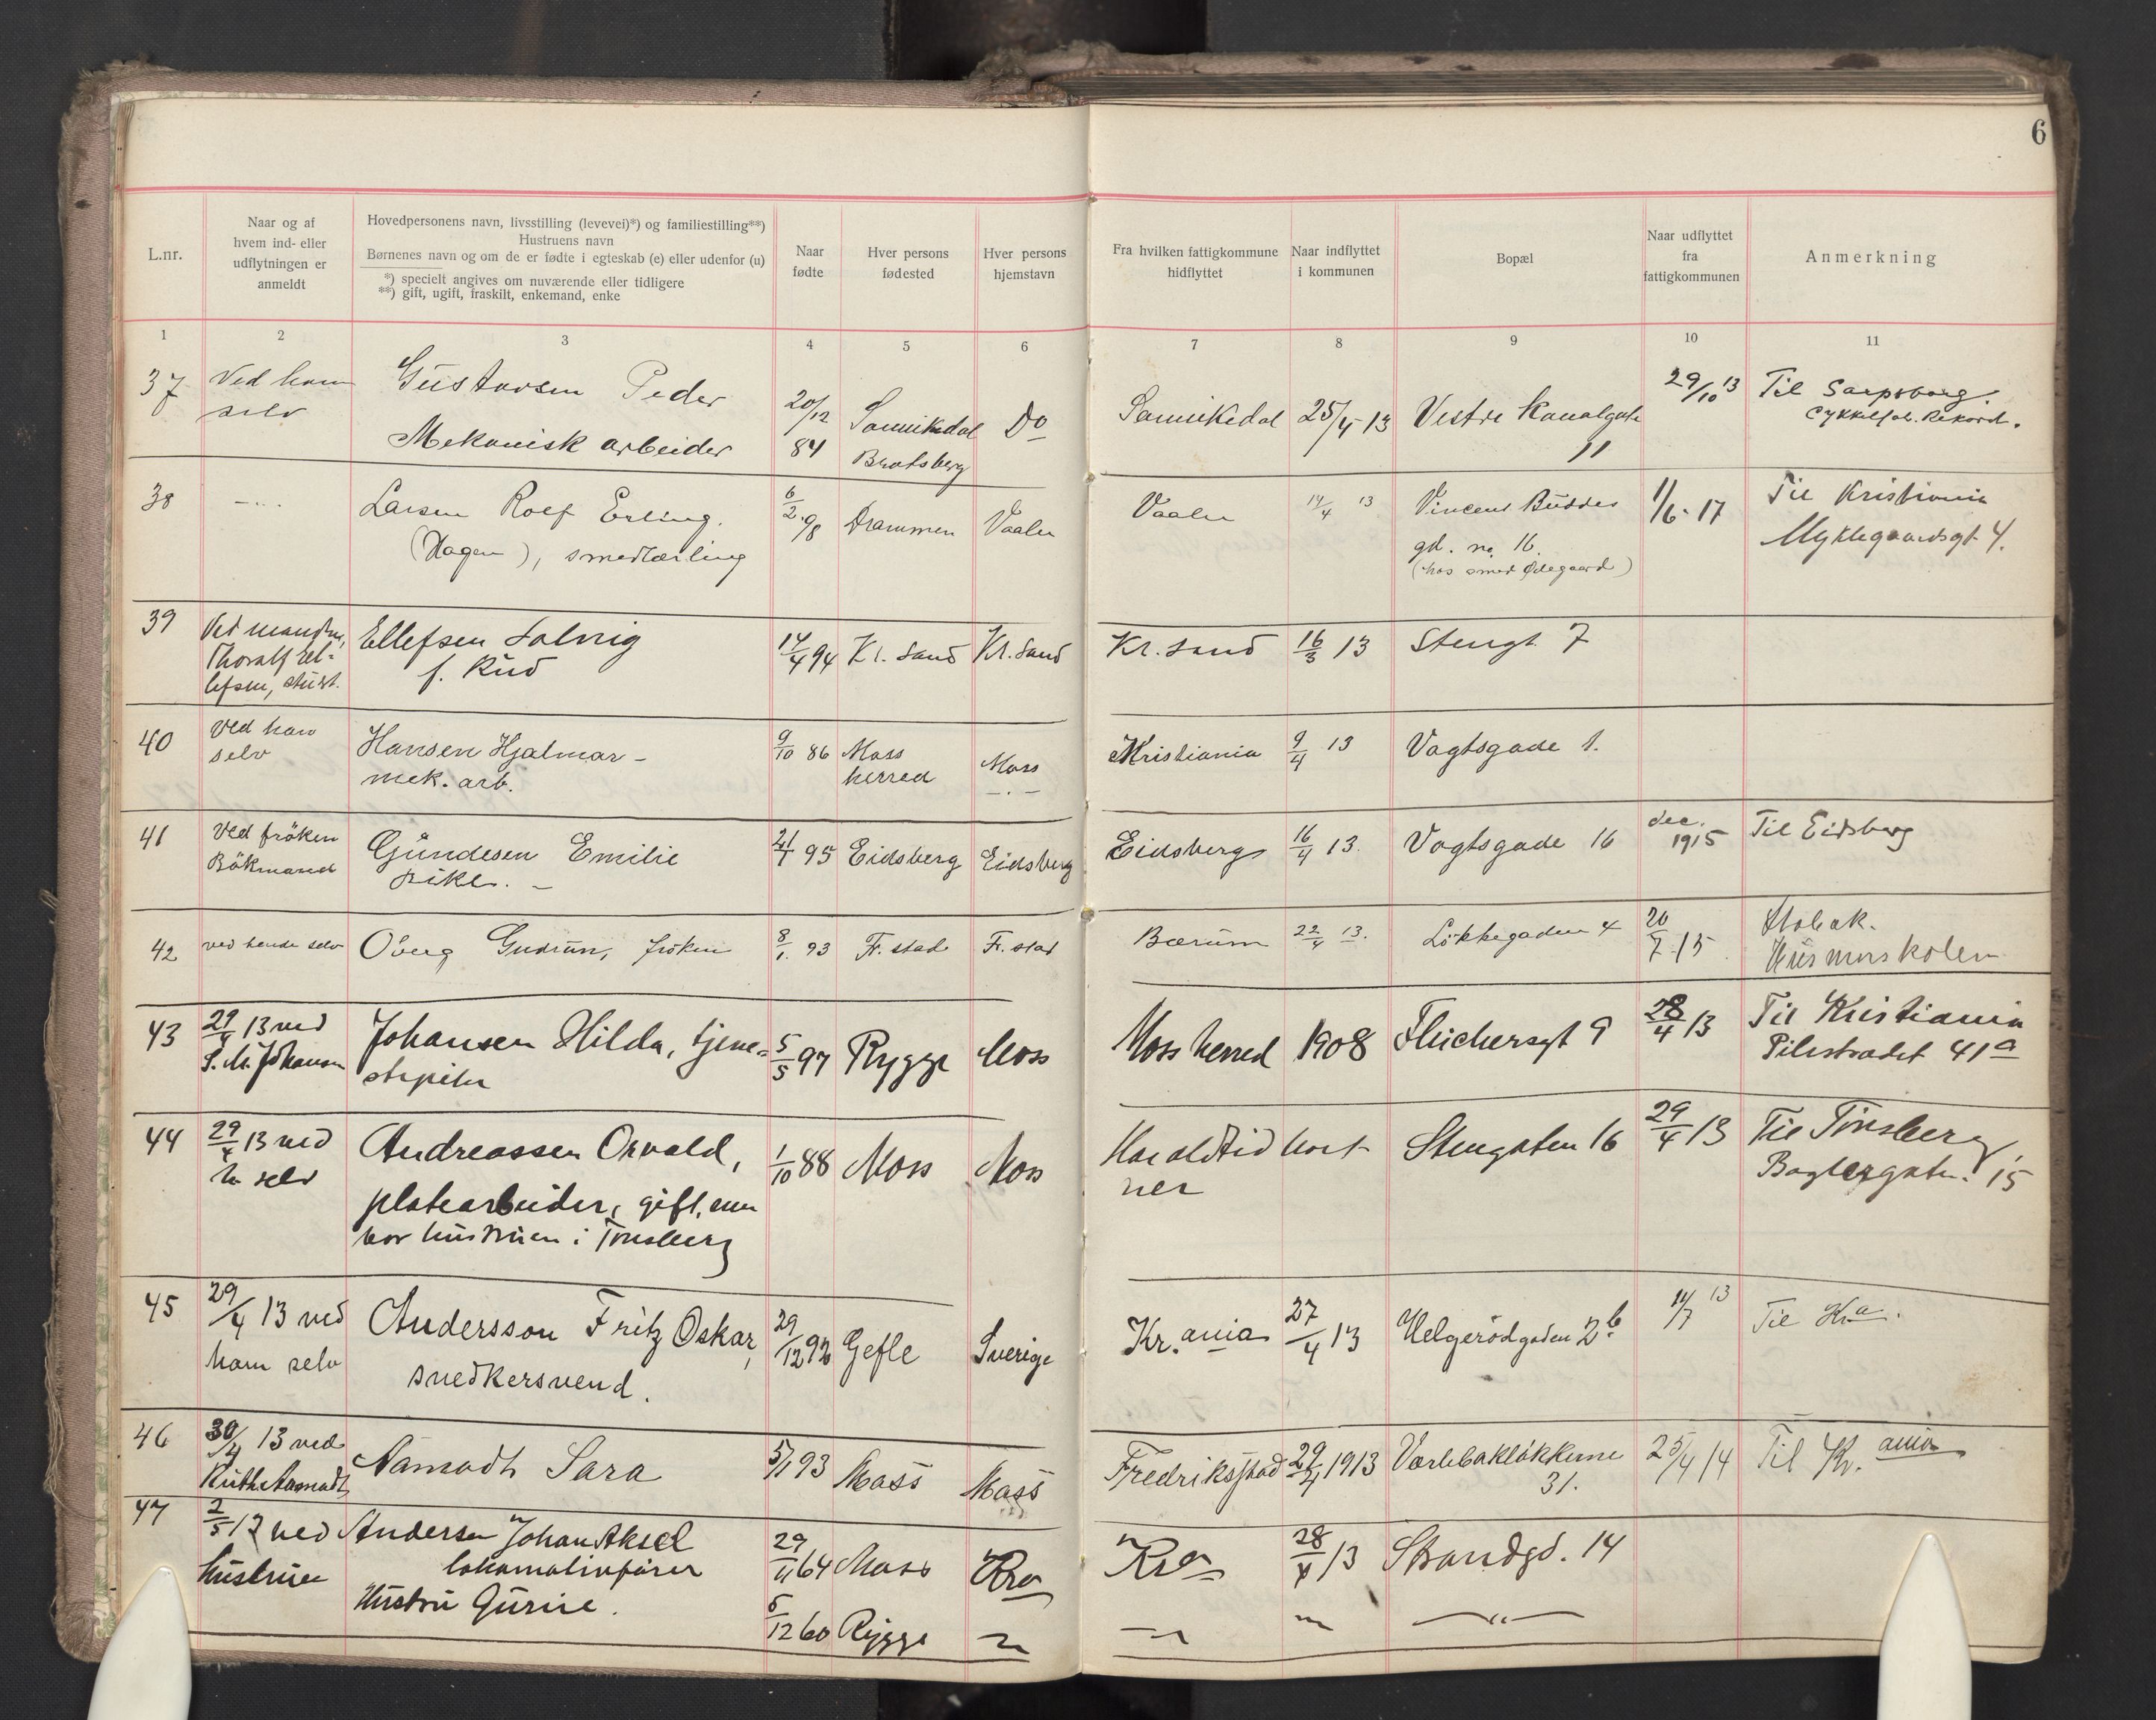 6
L.nr.
Naar og af
hvem ind- eller
udflytningen er
anmeldt
Hovedpersonens navn, livsstilling (levevei)*) og familiestilling**)
Hustruens navn
Børnenes navn og om de er fødte i egteskab (e) eller udenfor (u)
*) specielt angives om nuværende eller tidligere
**) gift, ugift, fraskilt, enkemand, enke
Naar
fødte
Hver persons
fødested
Hver persons
hjemstavn
Fra hvilken fattigkommune
hidflyttet
Naar indflyttet
i kommunen
Bopæl
Naar udflyttet
fra
fattigkommunen
Anmerkning
1 2 3 4 5 6 7 8 9 10 11
37 Ved ham Gustavsen Peder 29/10 13 Til Sarpsborg.
selv 20/12 Sannikedal Do Sannikedal 25/4-13 Vestre Kanalgate Cykkelfab. Rekord.
Mekanisk arbeider 84 Bratsberg 11
38 Larsen Rolf Erling. 6/2 98 Drammen Vaaler Vaaler 14/4 13 Vincent Buddes 1/6-17 Til Kristiania
(Hagen), smedlærling gd. no. 16. Myklegaardsgt 4.
(hos smed Ødegaard)
39 Ved manden, Ellefsen Solveig 14/4 94 Kr. sand Kr. sand Kr. sand 16/3 13 Stengt. 7
Thoralf El- f. Rud
lefsen,
40 Ved ham Hansen Hjalmar - 9/10 86 Moss Moss Kristiania 9/4 13 Vogtsgade 1.
selv mek. arb. herred
41 Ved frøken Gundesen Emilie 21/7 95 Eidsberg Eidsberg Eidsberg 16/4 13. Vogtsgade 16 dec. 1915 Til Eidsberg
Bökmand pike. -
42 ved hende selv Öberg Gudrun, frøken 8/1. 93 Fr. stad Fr. stad Bærum 22/4 13. Løkkegaden 4 20/7-15
Husmorskolen
43 29/4 13 ved Johansen Hilda, tjene- 5/5 97 Rygge Moss Moss herred 1908 Fleichersgt 9 28/4 13 Til Kristiania
S. M. Johansen stepike Pilestradet 41a
44 29/4 13 ved Andreassen Osvald, 1/10 88 Moss Moss Haraldtid Stengaten 16 29/4 13 Til Tönsberg
h. selv platearbeider, gift, men ner Baglergaten. 15
bor hustruen i Tönsberg
45 29/4 13 ved Andersson Fritz Oskar, 29/12 92 Gefle Sverige Kr.ania 27/4 13 Helgerödgaden 2b 14/7 13 Til Kra.
ham selv snedkersvend.
46 30/4 13 ved Aamodt Sara 5/1 93 Moss Moss Fredriksstad 29/4 1913 Varlebakløkkerne 25/4 14 Til Kr.ania
Ruth Aamodt 31.
47 2/5 13 ved Andersen Johan Aksel 29/11 64 Moss Kra Kra 28/4 13 Strandgd. 14
hustruen lokomotivfører
Hustru Gurine. 5/12 60 Rygge " " " "